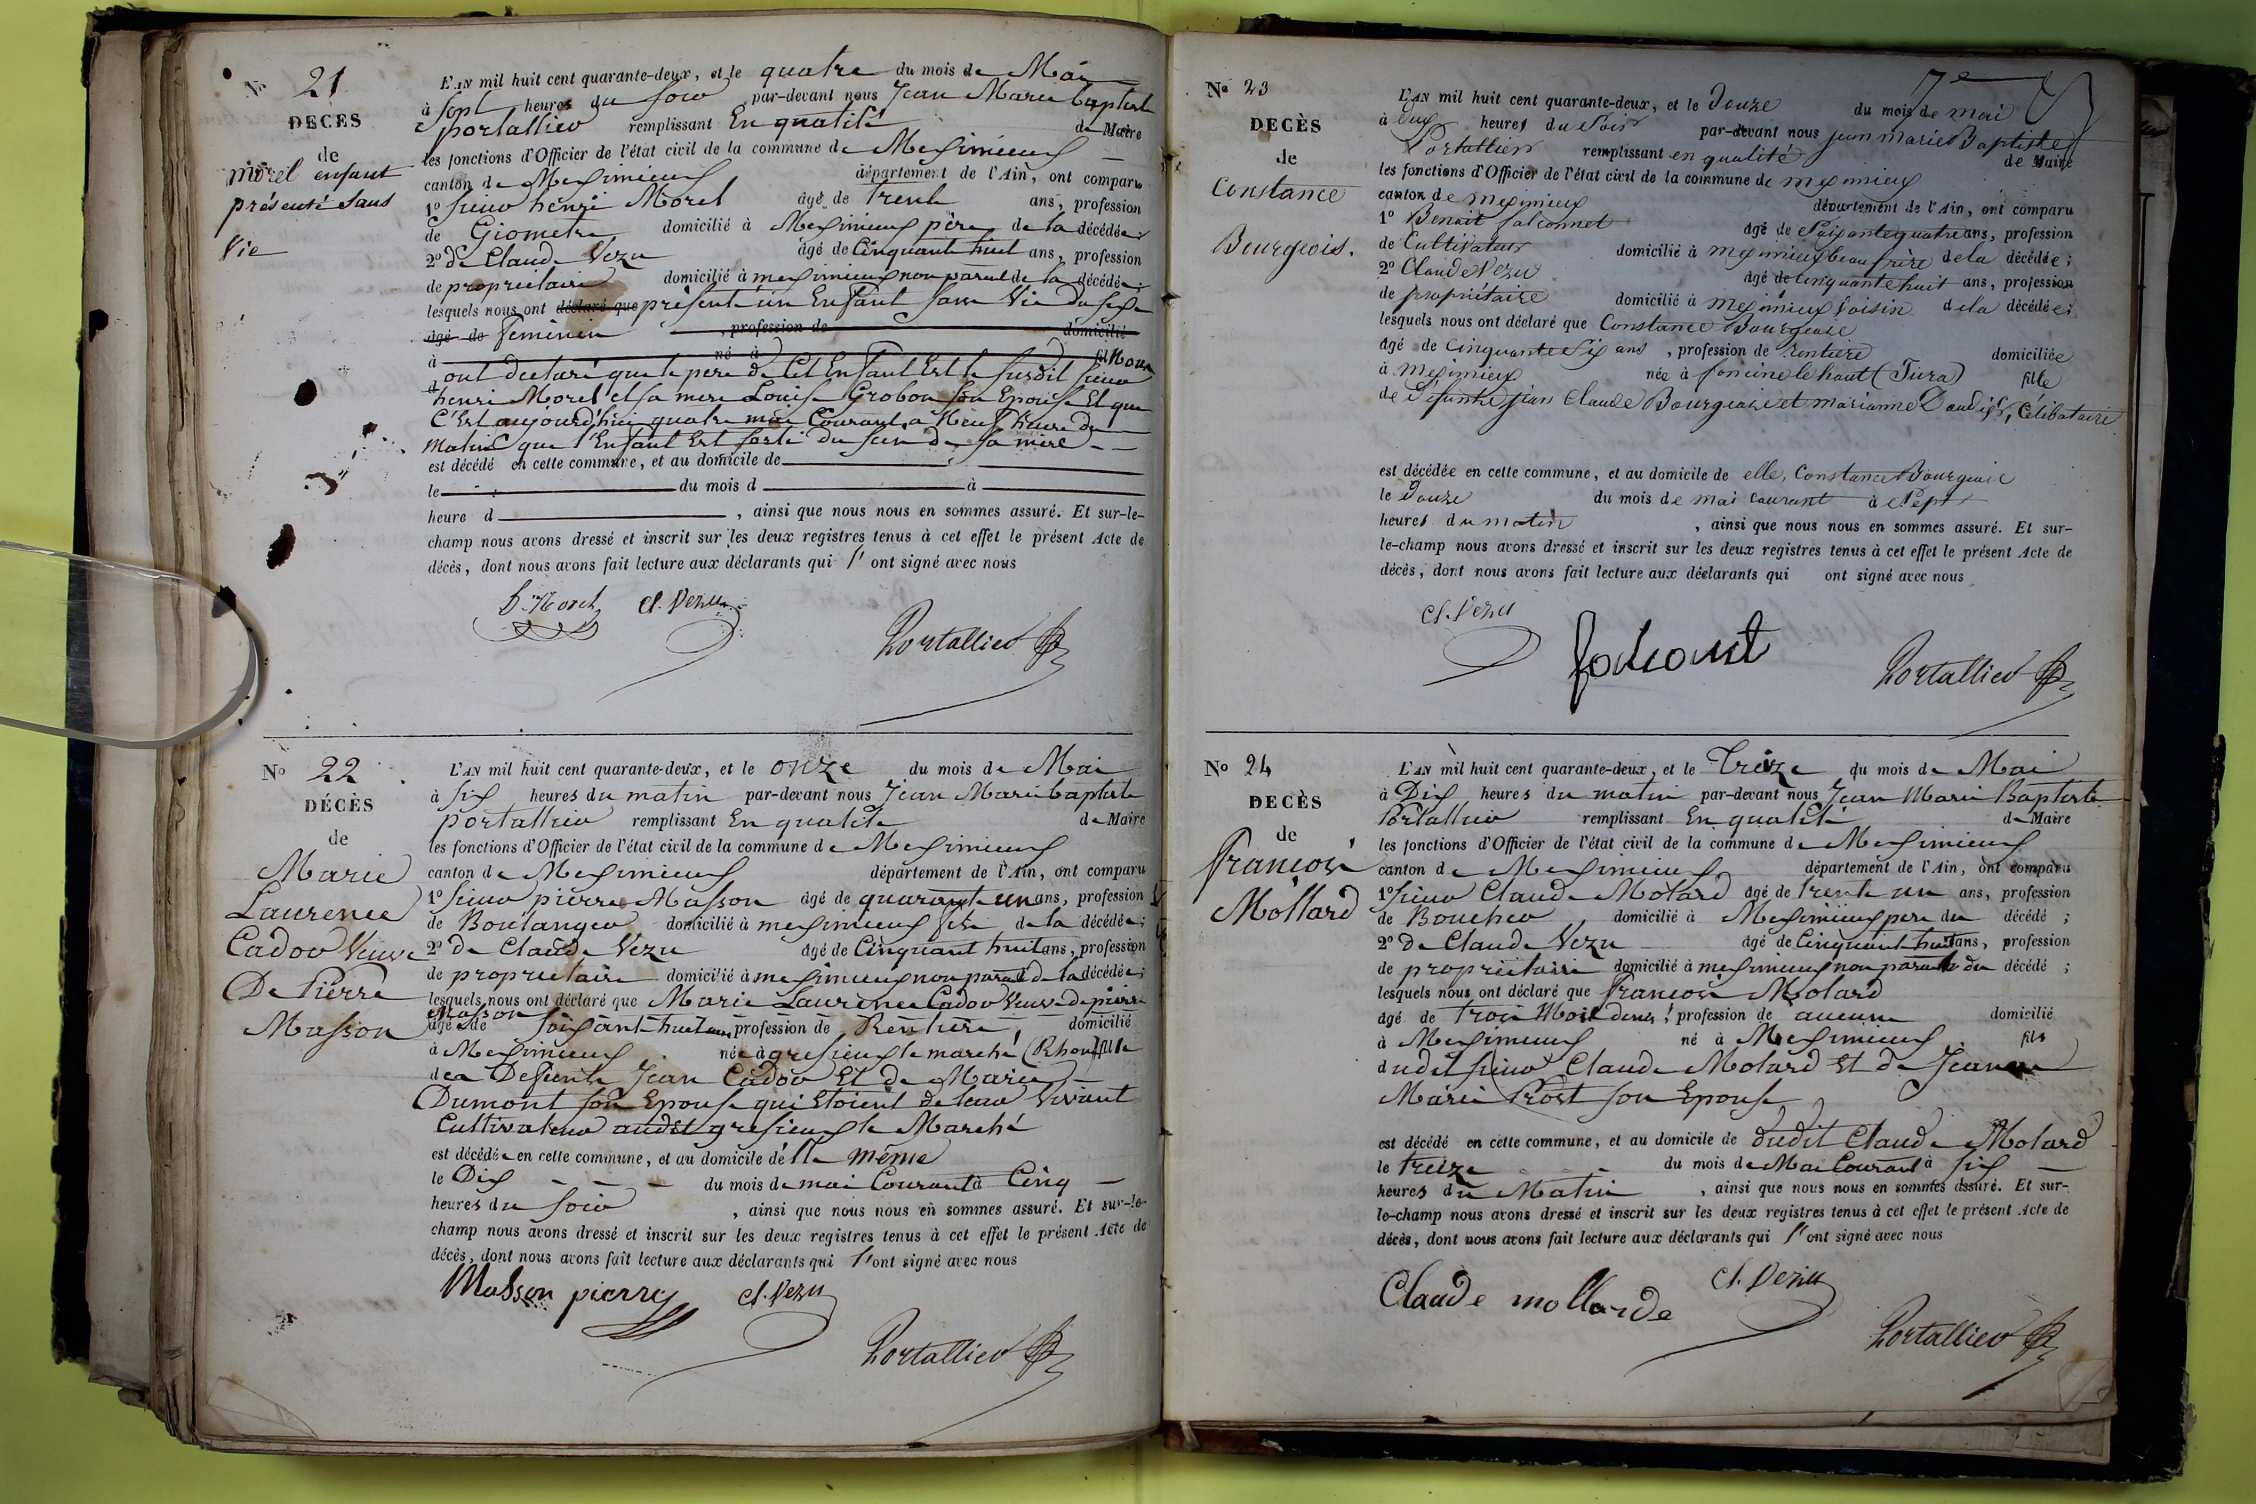 No 21
DÉCÈS
de
morel enfant
présenté Sans
Vie
L'AN mil huit cent quarante-deux, et le quatre du mois de Mai
à sept heures du soir par-devant nous Jean Marie baptiste
portallier remplissant En qualité de Maire
les fonctions d'Officier de l'état civil de la commune de Meximieux
canton de Meximieux département de l'Ain, ont comparu
1º sieur henri Morel âgé de trente ans, profession
de Géometre domicilié à Meximieux père de la décédée;
2º de Claude Vezu âgé de Cinquant huit ans, profession
de propriétaire domicilié à meximieux non parent de la décédée;
lesquels nous ont déclaré que présenté un Enfant sans Vie du sexe
âgé de feminin , profession de domicilié
à né à fil Nous
d ont declaré que le pere de Cet Enfant Est le susdit sieur
henri Morel et sa mere Louise Grobon son Epouse Et que
C'Est aujourd'hui quatre mai Courant a Neuf heure du
Matin que l'Enfant Est sorti du sein de sa mère
est décédé en cette commune, et au domicile de
le du mois d à
heure d , ainsi que nous nous en sommes assuré. Et sur-le-
champ nous avons dressé et inscrit sur les deux registres tenus à cet effet le présent Acte de
décès, dont nous avons fait lecture aux déclarants qui l'ont signé avec nous
h. Morel Cl. Vezu
Portallier
No 22
DÉCÈS
de
Marie
Laurence
Cador Veuve
De Pierre
Masson
L'AN mil huit cent quarante-deux, et le onze du mois de Mai
à six heures du matin par-devant nous Jean Marie baptiste
portallier remplissant En qualité de Maire
les fonctions d'Officier de l'état civil de la commune de Meximieux
canton de Meximieux département de l'Ain, ont comparu
1º sieur pierre Masson âgé de quarante un ans, profession
de Boulanger domicilié à meximieux fils de la décédée;
2º de Claude Vezu âgé de Cinquant huit ans, profession
de propriétaire domicilié à meximieux non parent de la décédée;
lesquels nous ont déclaré que Marie Laurence Cador Veuve de pierre
Masson
âgée de soixante huit ans profession de Rentière, domicilié
à Meximieux née à gresieux le marché (Rhone) fille
de Defunts Jean Cador Et de Marie
Dumont son Epouse qui Etoient de leur Vivant
Cultivateur audit gresieux le Marché
est décédée en cette commune, et au domicile d'Elle même
le Dix du mois de mai Courant à Cinq
heures du soir , ainsi que nous nous en sommes assuré. Et sur-le-
champ nous avons dressé et inscrit sur les deux registres tenus à cet effet le présent Acte de
décès, dont nous avons fait lecture aux déclarants qui l'ont signé avec nous
Masson pierre Cl. Vezu
Portallier
7e
No 23
DECÈS
de
Constance
Bourgeois.
L'AN mil huit cent quarante-deux, et le Douze du mois de mai
à Six heures du Soir par-devant nous jean marie Baptiste
Portallier remplissant en qualité de Maire
les fonctions d'Officier de l'état civil de la commune de meximieux
canton de meximieux département de l'Ain, ont comparu
1º Benoit falconnet âgé de Soixante quatre ans, profession
de Cultivateur domicilié à meximieux beau frère de la décédée;
2º Claude Vezu âgé de cinquante huit ans, profession
de propriétaire domicilié à meximieux Voisin de la décédée;
lesquels nous ont déclaré que Constance Bourgeoise
âgé de cinquante Six ans , profession de rentière domiciliée
à Meximieux née à foncine le haut (Jura) fille
de Défunts jean Claude Bourgeoise et marianne , Célibataire.
est décédée en cette commune, et au domicile de elle, Constance Bourgeoise
le Douze du mois de mai courant à Sept
heures du matin , ainsi que nous nous en sommes assuré. Et sur-
le-champ nous avons dressé et inscrit sur les deux registres tenus à cet effet le présent Acte de
décès, dont nous avons fait lecture aux déclarants qui ont signé avec nous
Cl. Vezu
Portallier
No 24
DECÈS
de
francois
Mollard
L'AN mil huit cent quarante-deux, et le Treize du mois de Mai
à Dix heures du matin par-devant nous Jean Marie Baptiste
Portallier remplissant En qualité de Maire
les fonctions d'Officier de l'état civil de la commune de Meximieux
canton de Meximieux département de l'Ain, ont comparu
1º sieur Claude Molard âgé de trente un ans, profession
de Boucher domicilié à Meximieux pere du décédé;
2º de Claude Vezu âgé de Cinquant huit ans, profession
de propriétaire domicilié à meximieux non parent du décédé;
lesquels nous ont déclaré que francois Molard
âgé de trois Mois , profession de aucune domicilié
à Meximieux né à Meximieux fils
dudit sieur Claude Molard Et de Jeanne
Marie Prost son Epouse
est décédé en cette commune, et au domicile de dudit Claude Molard
le treize du mois de Mai Courant à six
heures du Matin , ainsi que nous nous en sommes assuré. Et sur-
le-champ nous avons dressé et inscrit sur les deux registres tenus à cet effet le présent Acte de
décès, dont nous avons fait lecture aux déclarants qui l'ont signé avec nous
Claude mollarde Cl. Vezu
Portallier